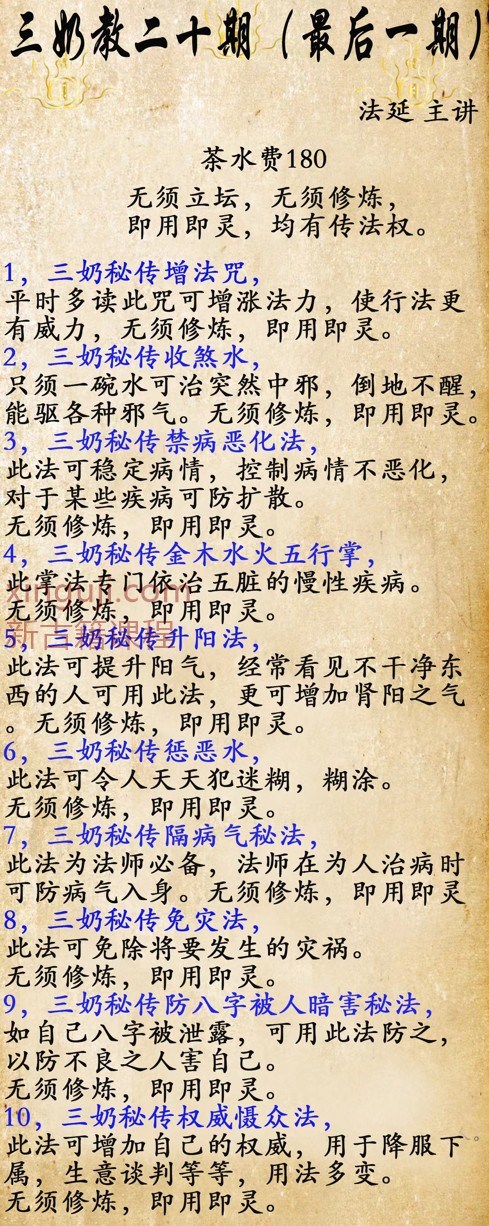 三奶教二十期（最后一期）
法延 主讲
茶水费180
无须立坛，无须修炼，
即用即灵，均有传法权。
1，三奶秘传增法咒，
平时多读此咒可增涨法力，使行法更
有威力，无须修炼，即用即灵。
2，三奶秘传收煞水，
只须一碗水可治突然中邪，倒地不醒，
能驱各种邪气。无须修炼，即用即灵。
3，三奶秘传禁病恶化法，
此法可稳定病情，控制病情不恶化，
对于某些疾病可防扩散。
无须修炼，即用即灵。
4，三奶秘传金木水火五行掌，
此掌法专门依治五脏的慢性疾病。
xinguji.com
无须修炼，即用即灵。
新古籍课程
5，三奶秘传升阳法，
此法可提升阳气，经常看见不干净东
西的人可用此法，更可增加肾阳之气
。无须修炼，即用即灵。
6，三奶秘传惩恶水，
此法可令人天天犯迷糊，糊涂。
无须修炼，即用即灵。
7，三奶秘传隔病气秘法，
此法为法师必备，法师在为人治病时
可防病气入身。无须修炼，即用即灵
8，三奶秘传免灾法，
此法可免除将要发生的灾祸。
无须修炼，即用即灵。
9，三奶秘传防八字被人暗害秘法，
如自己八字被泄露，可用此法防之，
以防不良之人害自己。
无须修炼，即用即灵。
10，三奶秘传权威慑众法，
此法可增加自己的权威，用于降服下
属，生意谈判等等，用法多变。
无须修炼，即用即灵。